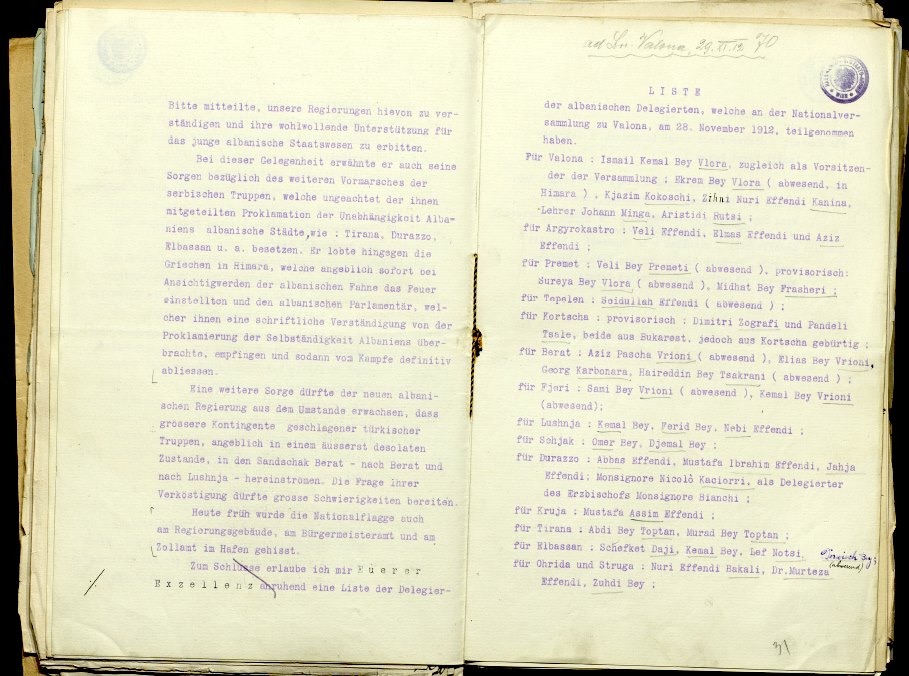 Bitte mitteilte, unsere Regierungen hievon zu ver-
ständigen und ihre wohlwollende Unterstützung für
das junge albanische Staatswesen zu erbitten.
Bei dieser Gelegenheit erwähnte er auch seine
Sorgen bezüglich des weiteren Vormarsches der
serbischen Truppen, welche ungeachtet der ihnen
mitgeteilten Proklamation der Unabhängigkeit Alba-
niens albanische Städte, wie : Tirana, Durazzo,
Elbassan u. a. besetzen. Er lobte hingegen die
Griechen in Himara, welche angeblich sofort bei
Ansichtigwerden der albanischen Fahne das Feuer
einstellten und den albanischen Parlamentär, wel-
cher ihnen eine schriftliche Verständigung von der
Proklamierung der Selbständigkeit Albaniens über-
brachte, empfingen und sodann vom Kampfe definitiv
abliessen.
Eine weitere Sorge dürfte der neuen albani-
schen Regierung aus dem Umstande erwachsen, dass
grössere Kontingente geschlagener türkischer
Truppen, angeblich in einem äusserst desolaten
Zustande, in den Sandschak Berat - nach Berat und
nach Lushnja - hereinströmen. Die Frage ihrer
Verköstigung dürfte grosse Schwierigkeiten bereiten.
Heute früh wurde die Nationalflagge auch
am Regierungsgebäude, am Bürgermeisteramt und am
Zollamt im Hafen gehisst.
Zum Schlusse erlaube ich mir Euerer
Exzellenz anruhend eine Liste der Delegier-
ad Ln. Valona, 29. XI. 12 70
LISTE
der albanischen Delegierten, welche an der Nationalver-
sammlung zu Valona, am 28. November 1912, teilgenommen
haben.
Für Valona : Ismail Kemal Bey Vlora, zugleich als Vorsitzen-
der der Versammlung ; Ekrem Bey Vlora ( abwesend, in
Himara ) , Kjazim Kokoschi, Zihni Nuri Effendi Kanina,
Lehrer Johann Minga, Aristidi Rutsi ;
für Argyrokastro : Veli Effendi, Elmas Effendi und Aziz
Effendi ;
für Premet : Veli Bey Premeti ( abwesend ), provisorisch:
Sureya Bey Vlora ( abwesend ), Midhat Bey Frasheri ;
für Tepelen : Seidullah Effendi ( abwesend ) ;
für Kortscha : provisorisch : Dimitri Zografi und Pandeli
Tsale, beide aus Bukarest, jedoch aus Kortscha gebürtig ;
für Berat : Aziz Pascha Vrioni ( abwesend ), Elias Bey Vrioni,
Georg Karbonara, Haireddin Bey Tsakrani ( abwesend ) ;
für Fjeri : Sami Bey Vrioni ( abwesend ), Kemal Bey Vrioni
(abwesend);
für Lushnja : Kemal Bey, Ferid Bey, Nebi Effendi ;
für Schjak : Omer Bey, Djemal Bey ;
für Durazzo : Abbas Effendi, Mustafa Ibrahim Effendi, Jahja
Effendi; Monsignore Nicolò Kaciorri, als Delegierter
des Erzbischofs Monsignore Bianchi ;
für Kruja : Mustafa Assim Effendi ;
für Tirana : Abdi Bey Toptan, Murad Bey Toptan ;
für Elbassan : Schefket Daji, Kemal Bey, Lef Notsi,
(abwesend)
für Ohrida und Struga : Nuri Effendi Bakali, Dr.Murteza
Effendi, Zuhdi Bey ;
31